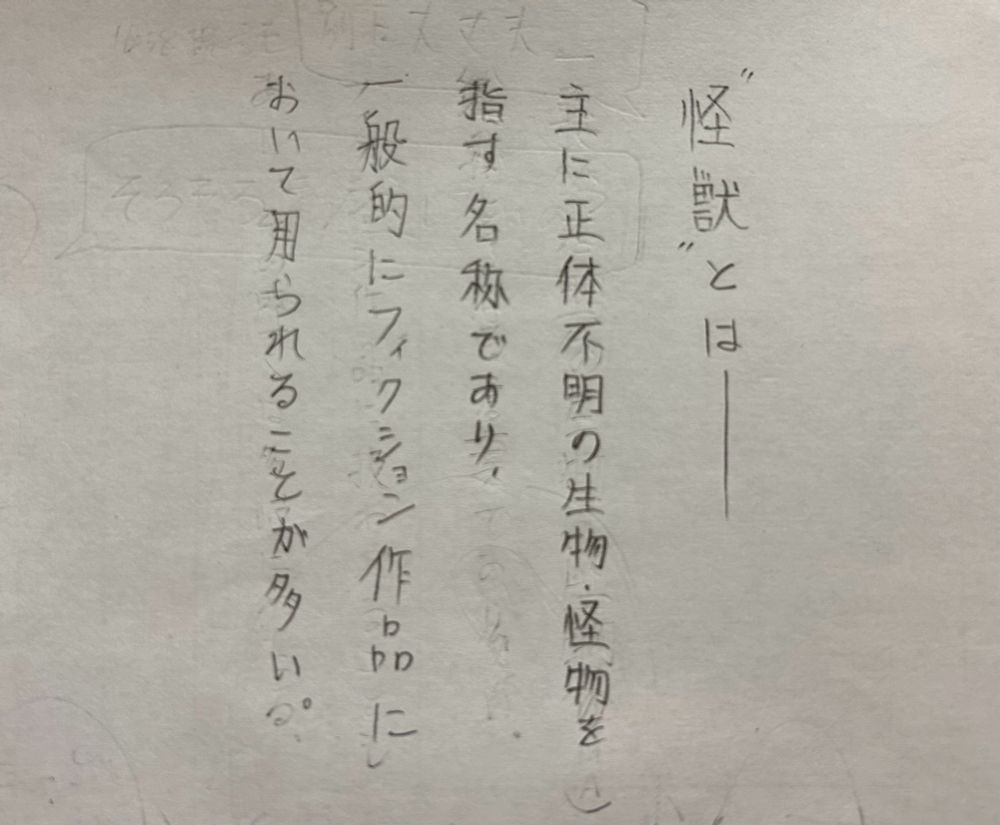 "怪獣"とは――
主に正体不明の生物・怪物を
指す名称であり、
一般的にフィクション作品に
おいて用られることが多い。